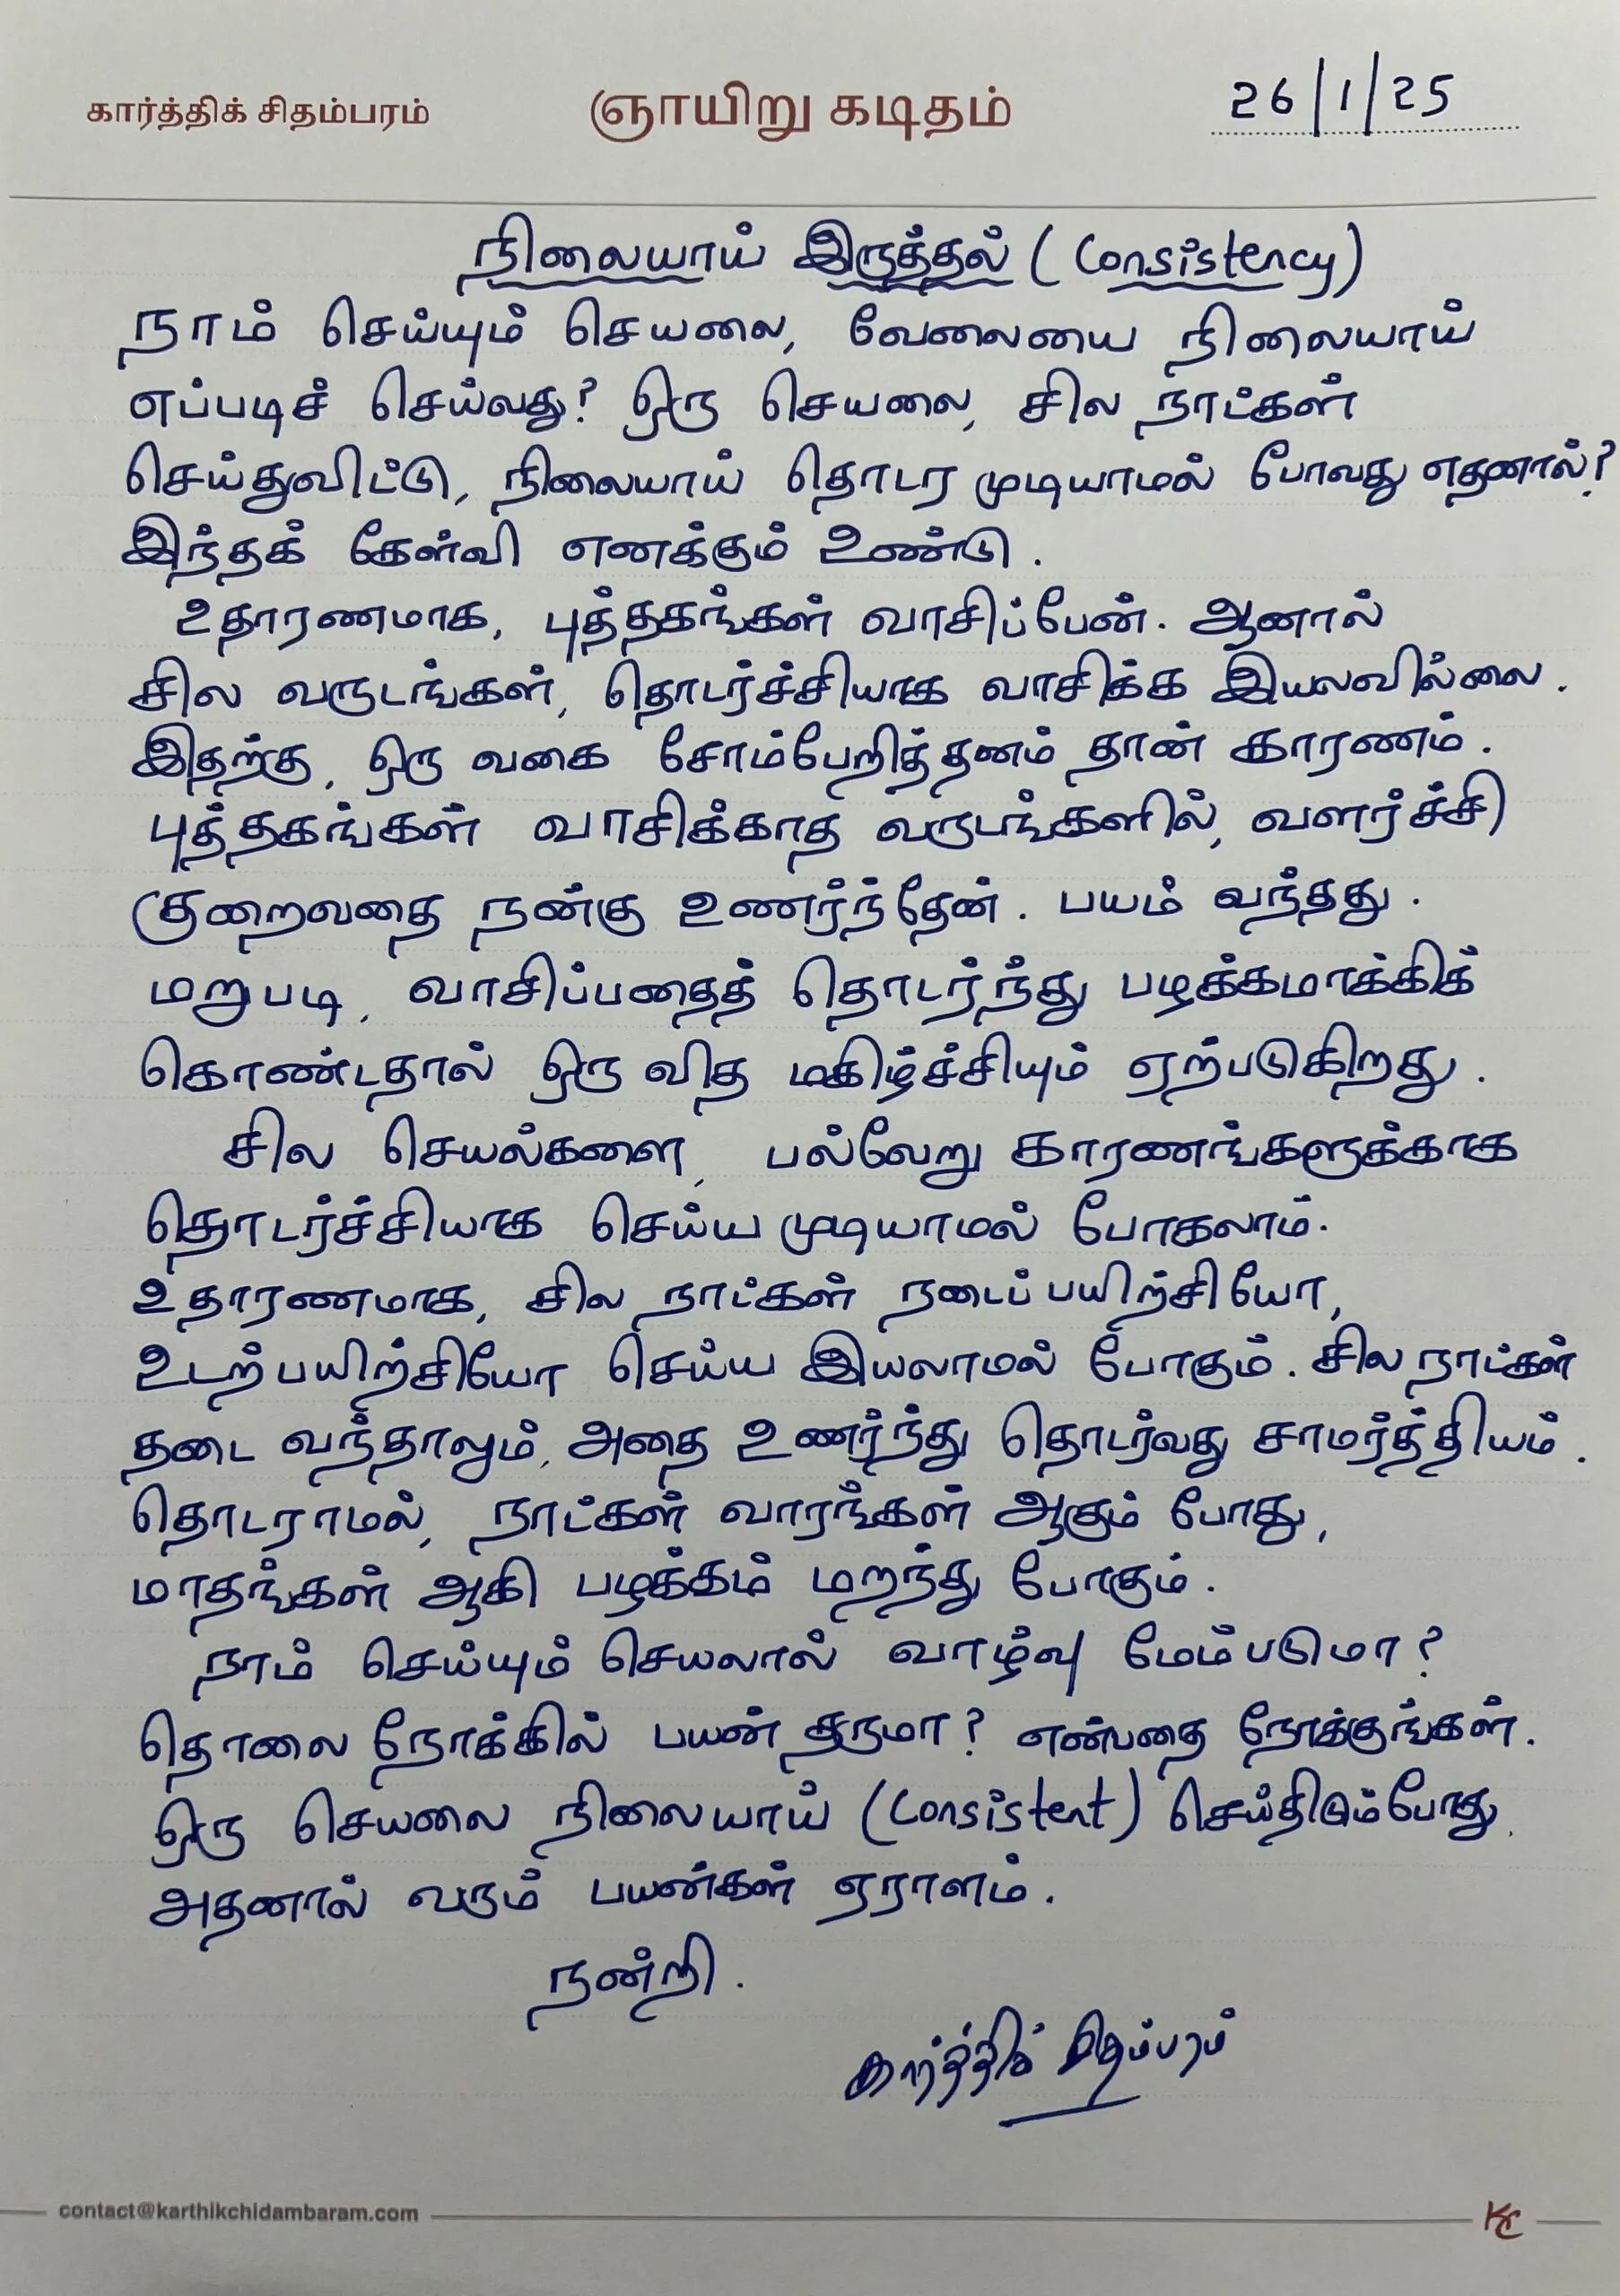 கார்த்திக் சிதம்பரம்
ஞாயிறு கடிதம்
26/1/25
நிலையாய் இருத்தல் (Consistency)
நாம் செய்யும் செயலை, வேலையை நிலையாய்
எப்படிச் செய்வது? ஒரு செயலை, சில நாட்கள்
செய்துவிட்டு, நிலையாய் தொடர முடியாமல் போவது எதனால்?
இந்தக் கேள்வி எனக்கும் உண்டு.
உதாரணமாக, புத்தகங்கள் வாசிப்பேன். ஆனால்
சில வருடங்கள், தொடர்ச்சியாக வாசிக்க இயலவில்லை.
இதற்கு, ஒரு வகை சோம்பேறித்தனம் தான் காரணம்.
புத்தகங்கள் வாசிக்காத வருடங்களில், வளர்ச்சி
குறைவதை நன்கு உணர்ந்தேன். பயம் வந்தது.
மறுபடி, வாசிப்பதைத் தொடர்ந்து பழக்கமாக்கிக்
கொண்டதால் ஒரு வித மகிழ்ச்சியும் ஏற்படுகிறது.
சில செயல்களை, பல்வேறு காரணங்களுக்காக
தொடர்ச்சியாக செய்ய முடியாமல் போகலாம்.
உதாரணமாக, சில நாட்கள் நடைப் பயிற்சியோ,
உடற்பயிற்சியோ செய்ய இயலாமல் போகும். சில நாட்கள்
தடை வந்தாலும், அதை உணர்ந்து தொடர்வது சாமர்த்தியம்.
தொடராமல், நாட்கள் வாரங்கள் ஆகும் போது,
மாதங்கள் ஆகி பழக்கம் மறந்து போகும்.
நாம் செய்யும் செயலால் வாழ்வு மேம்படுமா?
தொலை நோக்கில் பயன் தருமா? என்பதை நோக்குங்கள்.
ஒரு செயலை நிலையாய் (Consistent) செய்திடும்போது,
அதனால் வரும் பயன்கள் ஏராளம்.
நன்றி.
கார்த்திக் சிதம்பரம்
contact@karthikchidambaram.com
KC